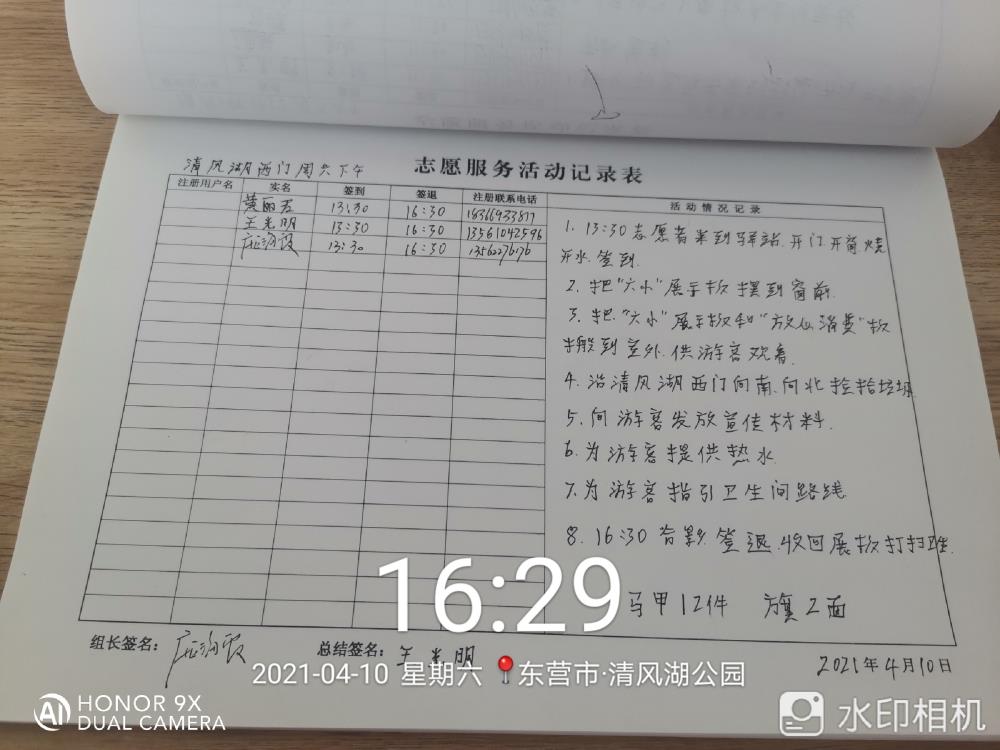 清风湖西门周六下午
志愿服务活动记录表
注册用户名 实名 签到 签退 注册联系电话 活动情况记录
黄丽君 13:30 16:30
王光明 13:30 16:30 13561042596
13:30 16:30 13562276176
1. 13:30志愿者来到驿站.开门开窗烧
开水.签到.
2. 把"六小"展示板摆到窗前.
3. 把"六小"展示板和"放心消费"板
搬到室外.供游客观看.
4. 沿清风湖西门向南.向北捡拾垃圾
5. 向游客发放宣传材料.
6. 为游客提供热水.
7. 为游客指引卫生间路线.
8. 16:30合影.签退.收回展板打扫卫生.
马甲12件 旗2面
组长签名:
总结签名: 王光明
2021年4月10日
16:29
2021-04-10 星期六 东营市·清风湖公园
AI HONOR 9X
DUAL CAMERA
水印相机